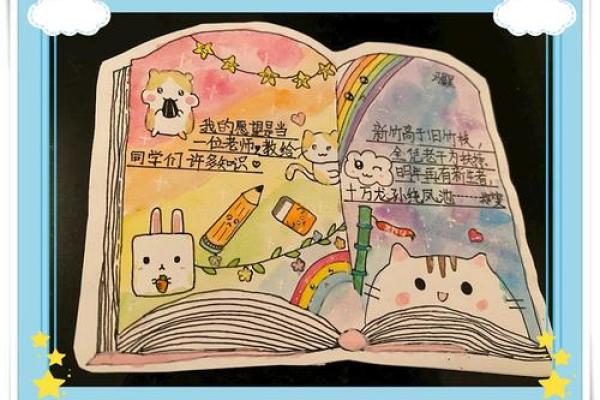 我的愿望是当
一位老师,教给
同学们许多知识
新竹高于旧竹枝,
全凭老干为扶持.
明年再有新生者,
十万龙孙绕凤池